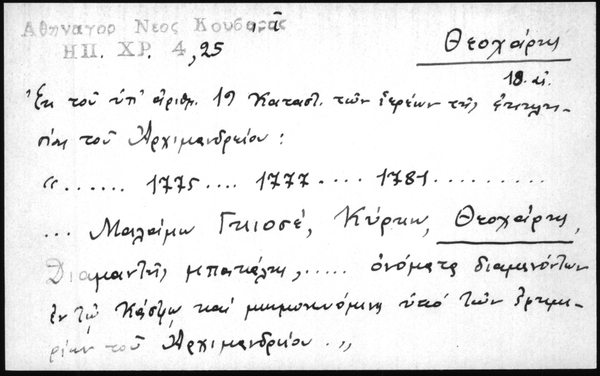 Αθηναγορ Νεος Κουβαρᾶς
ΗΠ. ΧΡ. 4, 25
Θεοχάρης
18. αἰ.
Ἐκ τοῦ ὑπ' ἀριθμ. 19 Καταστ. τῶν ἱερέων τῆς
τοῦ Ἀρχιμανδρείου :
"...... 1775 .... 1777 .... 1781 .........
... Μαλάμω Γκιοσέ, Κύρκω, Θεοχάρης,
Διαμαντῆς μπακάλης, ..... ὀνόματα διαμενόντων
ἐν τῷ Κάστρῳ καί μνημονευόμενα ὑπό τῶν ἐφημε-
ρίων τοῦ Ἀρχιμανδρείου . "